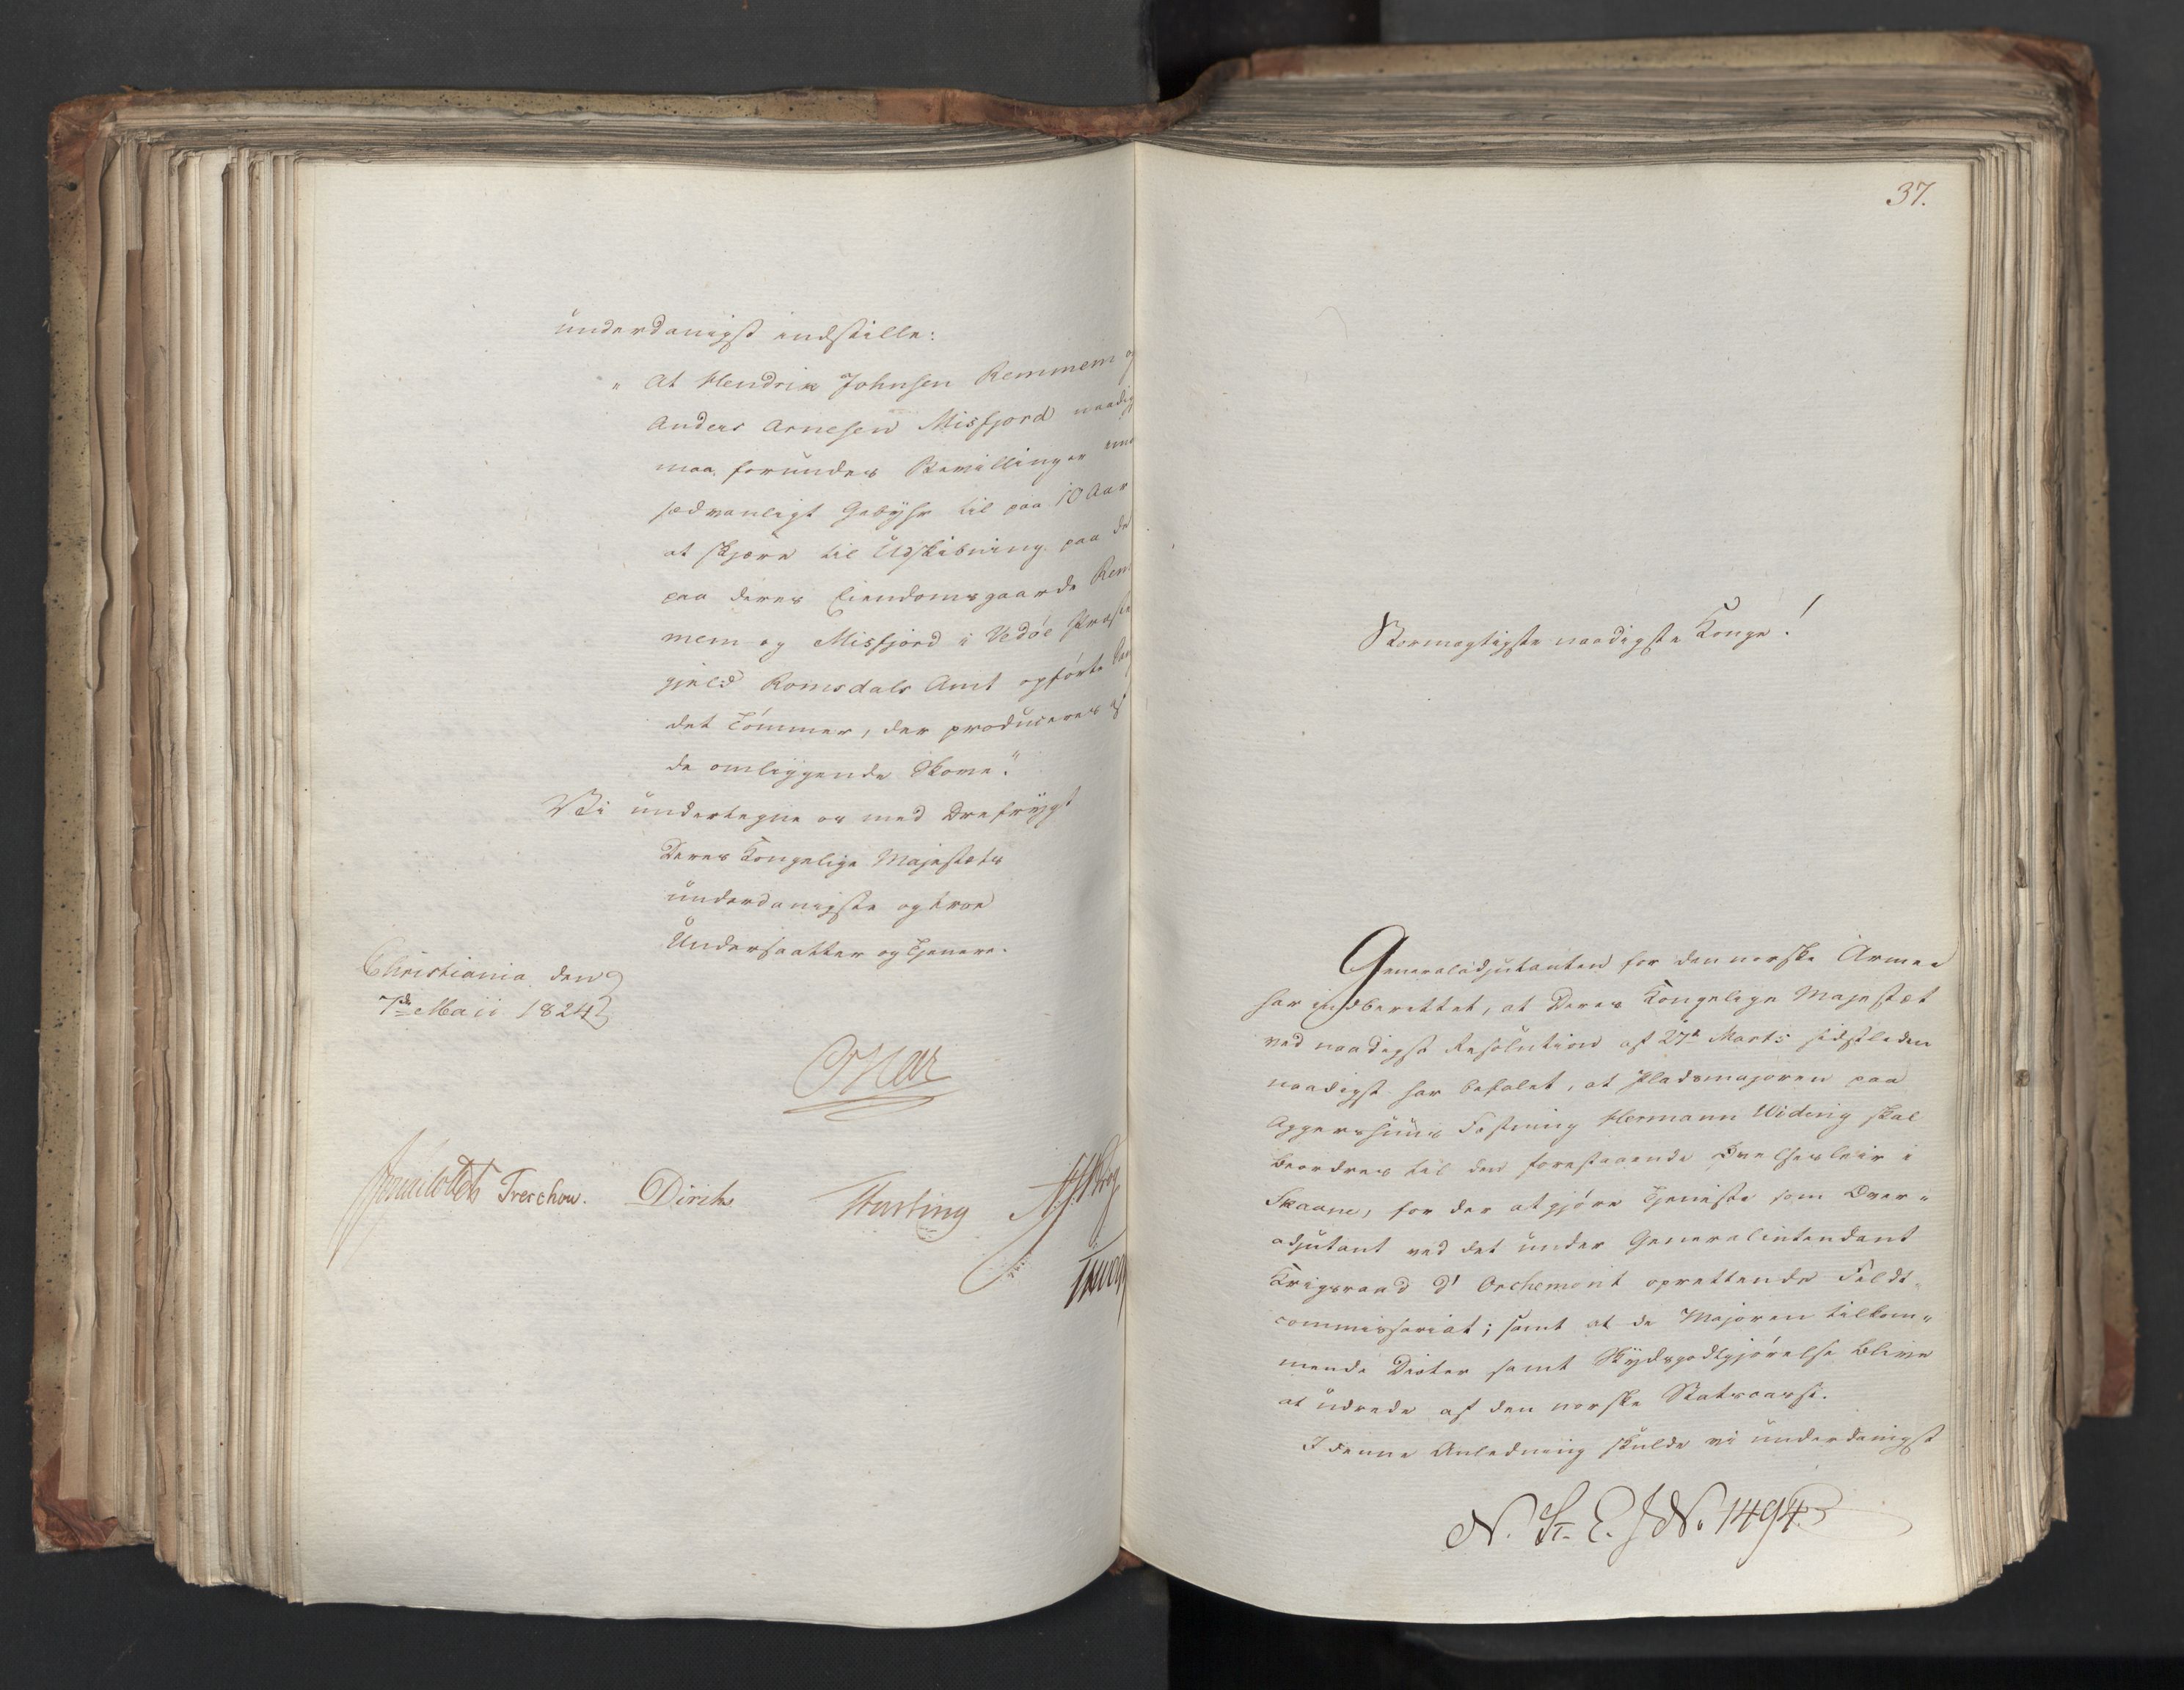 underdanigst indstille:
" At Hendrik Johnsen Remmem og
Anders Arnesen Misfjord naadig
maa forundes Bevillinger mo
sædvanligt Gebÿhr til paa 10 Aar
at skjære til Udskibning paa de
paa deres Eiendomsgaarde Rem
mem og Misfjord i Vedøe Præste
gjeld Romsdals Amt opførte Sau
det Tømmer, der produceres af
de omliggende Skove."
Vi undertegne os med Ærefrÿgt
Deres Kongelige Majestæts
underdanigste og troe
Undersaatter og Tjenere.
Christiania den
7de Maii 1824
Oscar
Treschow. Diriks
37.
Stormægtigste naadigste Konge!
Generaladjutanten for den norske Armee
har indberettet, at Deres Kongelige Majestæt
ved naadigst Resolution af 27de Marts sidstleden
naadigst har befalet, at Pladsmajoren paa
Aggershuus Fæstning Hermann Wideing skal
beordres til den forestaaende Øvelsesleir i
Skaane, for der at gjøre Tjeneste som Over-
adjutant ved det under Generalintendant
Krigsraad d' Orchemont oprettende Feldt-
commissariat; samt at de Majoren tilkom-
mende Diæter samt Skÿdsgodtgjørelse blive
at udrede af den norske Statscasse.
I denne Anledning skulde vi underdanigst
N. St. E. J. No. 1494